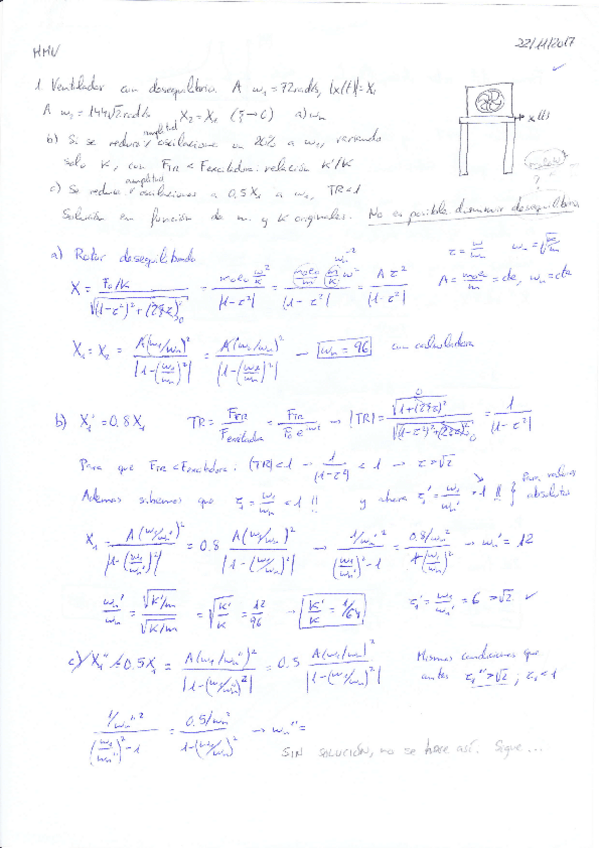 MMV
22/11/2017
1. Ventilador con desequilibrio. A ω₁ = 72 rad/s, |x(t)| = X₁
A ω₂ = 144√2 rad/s X₂ = X₁ (ξ→0) a) ωn
b) Si se reduce amplitud oscilaciones un 20% a ω₁, variando
solo K, con FTR < Fexcitadora: relación K'/K
c) Se reduce amplitud oscilaciones a 0,5X₁ a ω₁, TR<1
Solución en función de m y K originales. No es posible disminuir desequilibrio
x(t)
a) Rotor desequilibrado
τ = ω/ωn ωn = √(K/m)
X = (F₀/K)/√((1-τ²)²+(2ξτ)²) = (m₀e₀ ω²/K)/|1-τ²| = ((m₀e₀/m)(m/K)ω²)/|1-τ²| = Aτ²/|1-τ²|
A = m₀e/m = cte, ωn = cte
X₁ = X₂ = A(ω₁/ωn)²/|1-(ω₁/ωn)²| = A(ω₂/ωn)²/|1-(ω₂/ωn)²| → ωn = 96 con calculadora
b) X₁' = 0.8X₁ TR = FTR/Fexcitadora → |TR| = √(1+(2ξτ)²)/√((1-τ²)²+(2ξτ)²) = 1/|1-τ²|
Para que FTR < Fexcitadora: |TR|<1 → 1/|1-τ²| < 1 → τ>√2
Ademas sabemos que τ₁ = ω₁/ωn < 1 !! y ahora τ₁' = ω₁/ωn' > 1 !! } Para valores absolutos
= A(ω₁/ωn')²/|1-(ω₁/ωn')²| = 0.8 A(ω₁/ωn)²/|1-(ω₁/ωn)²| → ωn' = 12
ωn'/ωn = √(K'/m)/√(K/m) = √(K'/K) = 12/96 → K'/K = 1/64 τ₁' = ω₁/ωn' = 6 > √2 ✓
c) X₁'' = 0.5X₁ = A(ω₁/ωn'')²/|1-(ω₁/ωn'')²| = 0.5 A(ω₁/ωn)²/|1-(ω₁/ωn)²|
Mismas condiciones que
antes τ₁''>√2; τ₁<1
(1/ωn''²)/((ω₁/ωn'')²-1) = (0.5/ωn²)/(1-(ω₁/ωn)²) → ωn'' =
SIN SOLUCIÓN, no se hace así. Sigue...